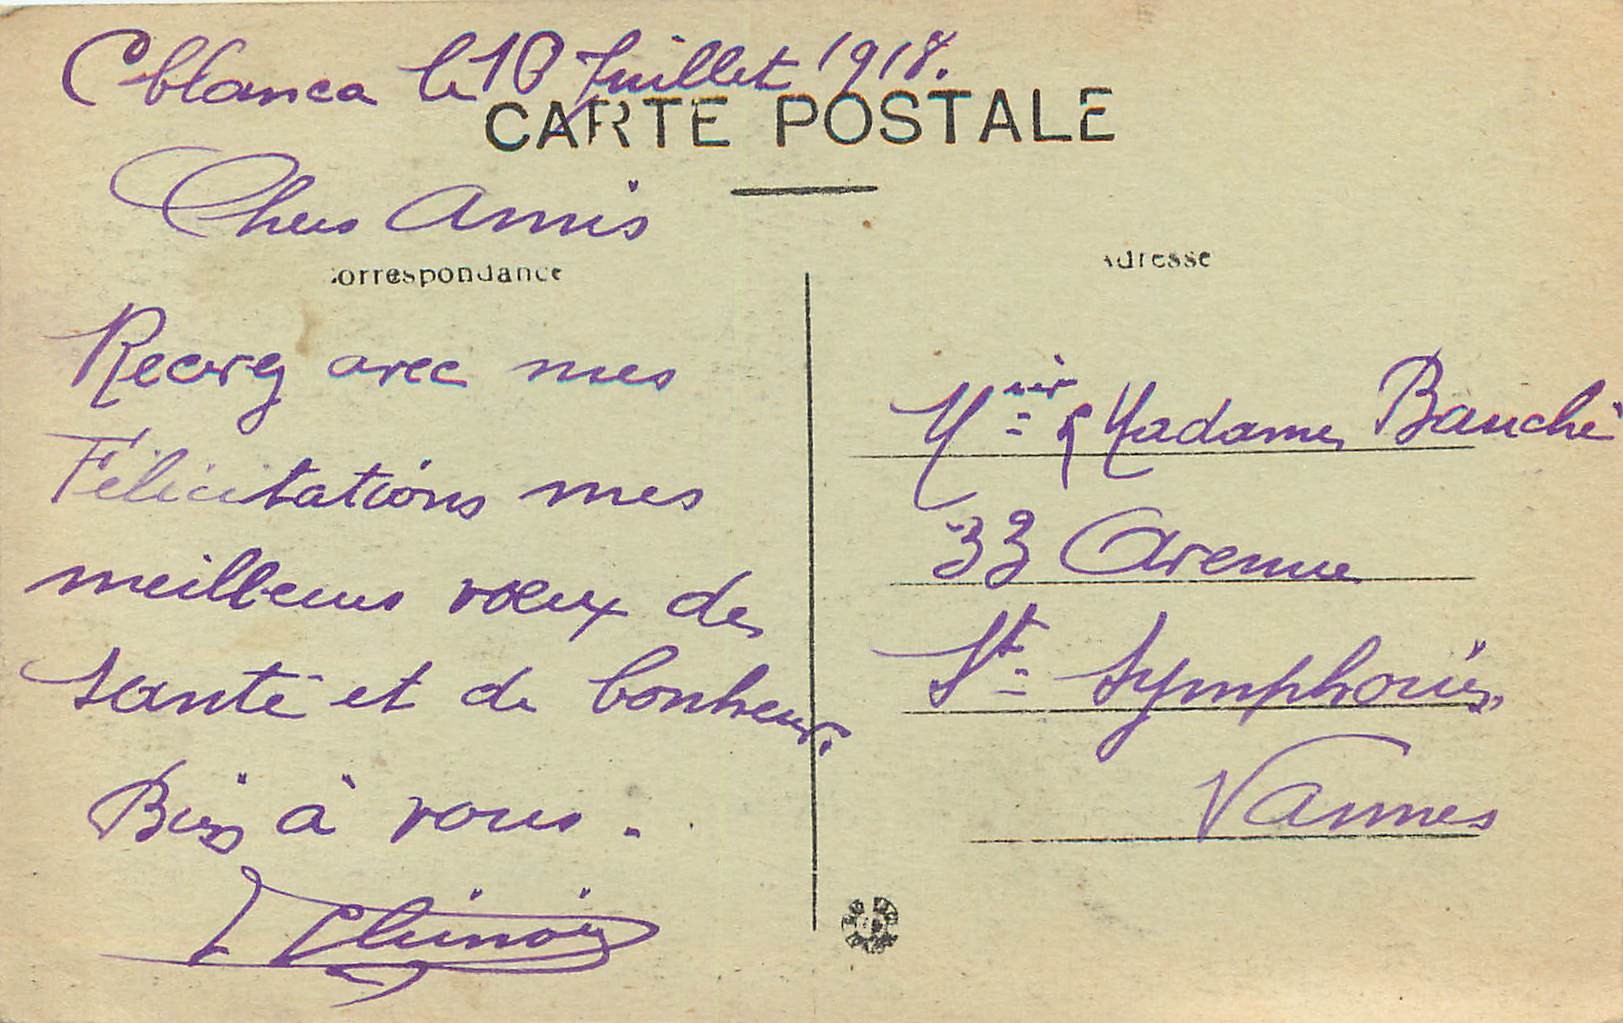 Cblanca le 18 Juillet 1918.
CARTE POSTALE
Chers Amis
Correspondance
Adresse
Recevez avec mes
Félicitations mes
meilleurs vœux de
santé et de bonheur.
Bien à vous.
Mr & Madame Bauché
33 Avenue
St. Symphorien
Vannes